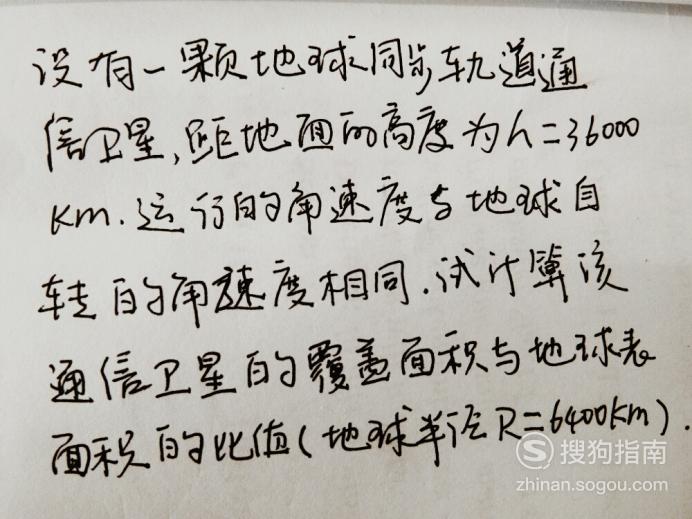 设有一颗地球同步轨道通
信卫星,距地面的高度为h=36000
km.运行的角速度与地球自
转的角速度相同.试计算该
通信卫星的覆盖面积与地球表
面积的比值(地球半径R=6400km).
S 搜狗指南
zhinan.sogou.com